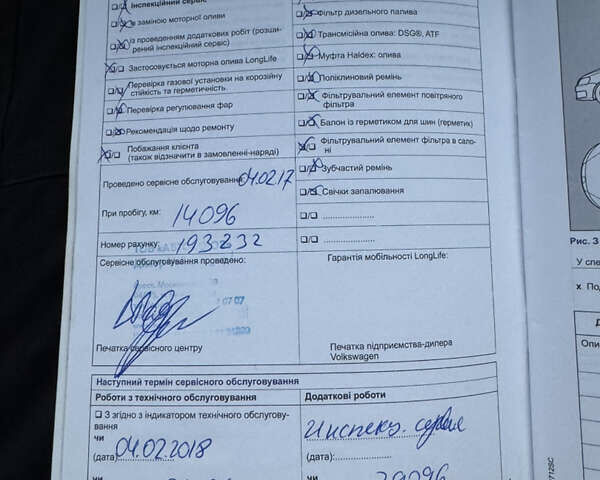 Інспекційний сервіс
із заміною моторної оливи
із проведенням додаткових робіт (розши-
рений інспекційний сервіс)
Застосовується моторна олива LongLife
Перевірка газової установки на корозійну
стійкість та герметичність
Перевірка регулювання фар
Рекомендація щодо ремонту
Побажання клієнта
(також відзначити в замовленні-наряді)
Проведено сервісне обслуговування 04.02.17
При пробігу, км: 14096
Номер рахунку: 193232
Сервісне обслуговування проведено:
Печатка сервісного центру
Фільтр дизельного палива
Трансмісійна олива: DSG®, ATF
Муфта Haldex: олива
Поліклиновий ремінь
Фільтрувальний елемент повітряного
фільтра
Балон із герметиком для шин (герметик)
Фільтрувальний елемент фільтра в сало-
ні
Зубчастий ремінь
Свічки запалювання
Гарантія мобільності LongLife:
Печатка підприємства-дилера
Volkswagen
Наступний термін сервісного обслуговування
Роботи з технічного обслуговування
З згідно з індикатором технічного обслугову-
вання
чи
(дата) 04.02.2018
чи
Додаткові роботи
Инспекц. сервис
(дата):
чи
29096
Рис. 3
У спе
x По
Д
Опи